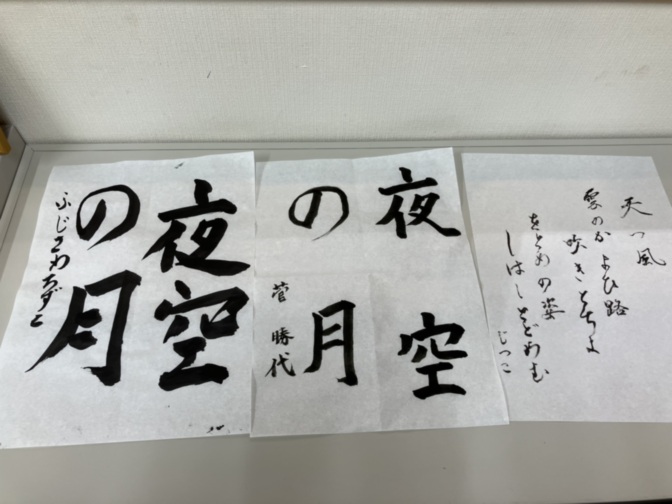 夜空
の月
ふじさわちずこ
夜空
の月
菅 勝代
天つ風
雲のかよひ路
吹きとちよ
をとめの姿
しはしとどめむ